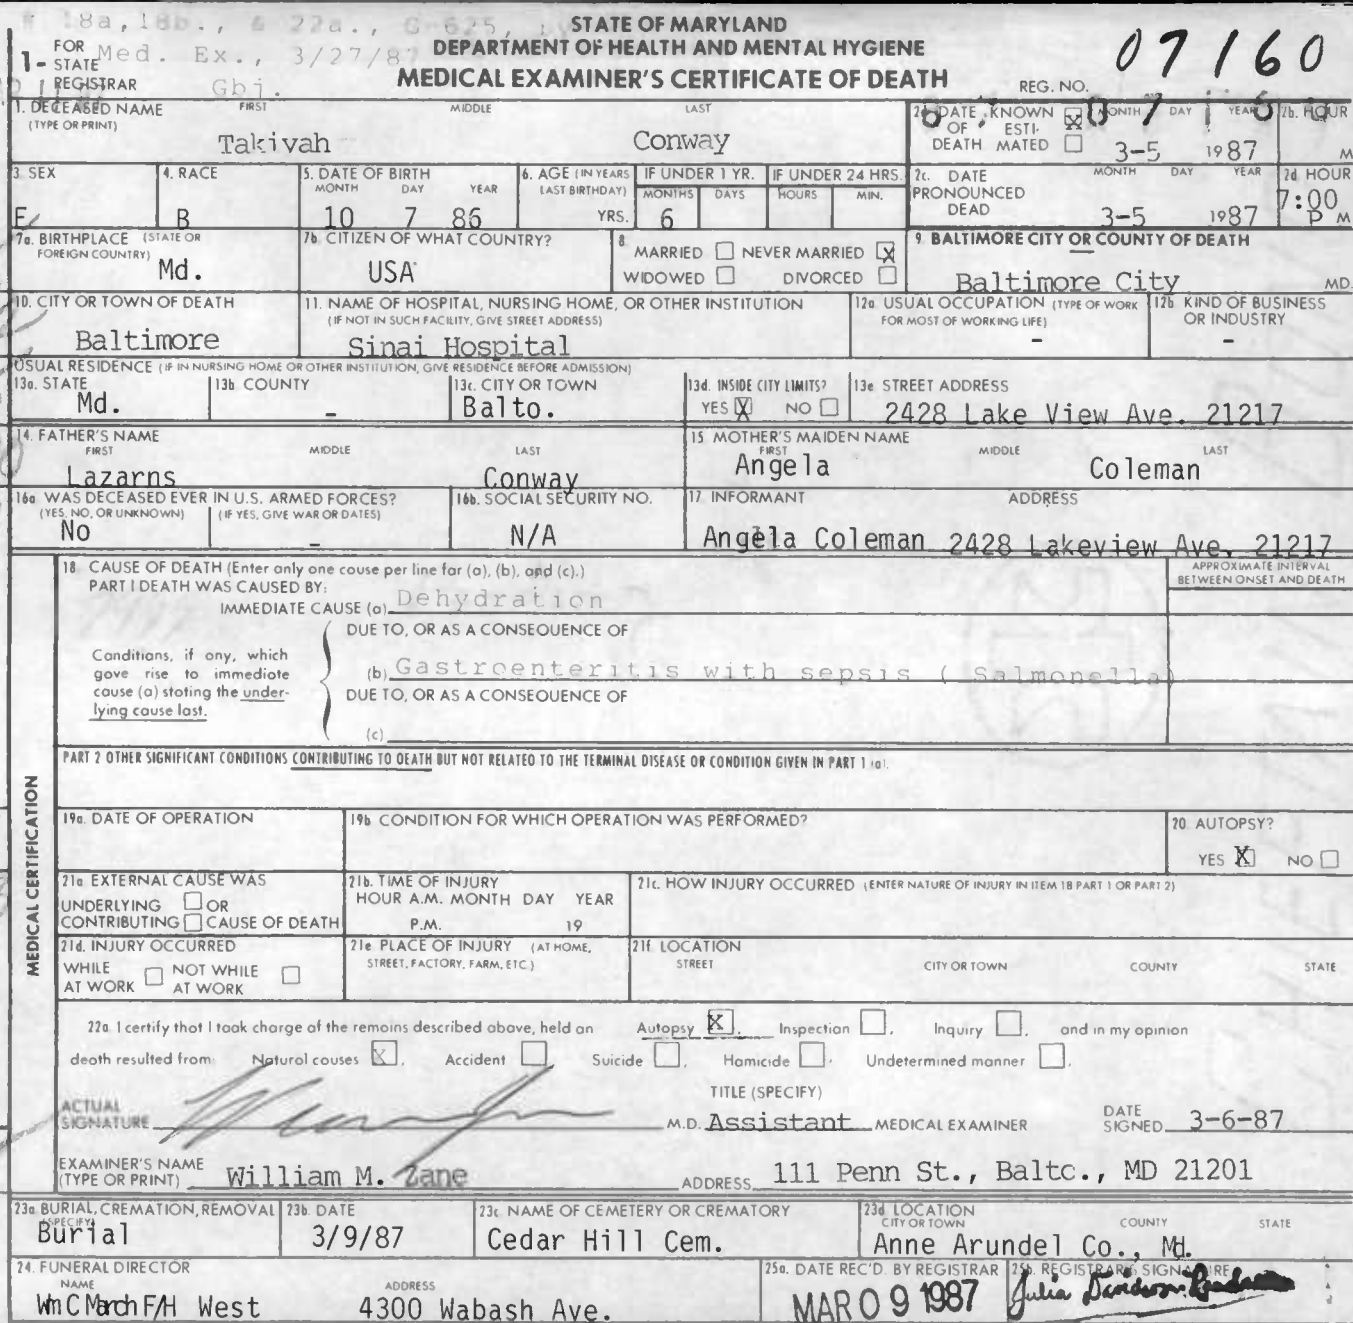 # 18a,18b., & 22a., G-625, by
STATE OF MARYLAND
DEPARTMENT OF HEALTH AND MENTAL HYGIENE
MEDICAL EXAMINER'S CERTIFICATE OF DEATH
1- FOR STATE REGISTRAR
Med. Ex., 3/27/87
Gbj.
REG. NO. 07160
1. DECEASED NAME (TYPE OR PRINT) FIRST MIDDLE LAST
Takivah Conway
2a. DATE OF DEATH KNOWN X ESTIMATED MONTH DAY YEAR 2b. HOUR
3-5 1987 M
3. SEX 4. RACE 5. DATE OF BIRTH MONTH DAY YEAR 6. AGE (IN YEARS LAST BIRTHDAY) IF UNDER 1 YR. MONTHS DAYS IF UNDER 24 HRS. HOURS MIN.
F B 10 7 86 YRS. 6
2c. DATE PRONOUNCED DEAD MONTH DAY YEAR 2d HOUR
3-5 1987 7:00 P M
7a. BIRTHPLACE (STATE OR FOREIGN COUNTRY)
Md.
7b. CITIZEN OF WHAT COUNTRY?
USA
8. MARRIED NEVER MARRIED X
WIDOWED DIVORCED
9. BALTIMORE CITY OR COUNTY OF DEATH
Baltimore City MD.
10. CITY OR TOWN OF DEATH
Baltimore
11. NAME OF HOSPITAL, NURSING HOME, OR OTHER INSTITUTION
(IF NOT IN SUCH FACILITY, GIVE STREET ADDRESS)
Sinai Hospital
12a. USUAL OCCUPATION (TYPE OF WORK FOR MOST OF WORKING LIFE)
-
12b. KIND OF BUSINESS OR INDUSTRY
-
USUAL RESIDENCE (IF IN NURSING HOME OR OTHER INSTITUTION, GIVE RESIDENCE BEFORE ADMISSION)
13a. STATE
Md.
13b. COUNTY
-
13c. CITY OR TOWN
Balto.
13d. INSIDE CITY LIMITS?
YES X NO
13e STREET ADDRESS
2428 Lake View Ave. 21217
14. FATHER'S NAME FIRST MIDDLE LAST
Lazarns Conway
15 MOTHER'S MAIDEN NAME FIRST MIDDLE LAST
Angela Coleman
16a. WAS DECEASED EVER IN U.S. ARMED FORCES?
(YES, NO, OR UNKNOWN) (IF YES, GIVE WAR OR DATES)
No -
16b. SOCIAL SECURITY NO.
N/A
17. INFORMANT ADDRESS
Angela Coleman 2428 Lakeview Ave. 21217
18. CAUSE OF DEATH (Enter only one cause per line for (a), (b), and (c).)
PART I DEATH WAS CAUSED BY:
IMMEDIATE CAUSE (a) Dehydration
APPROXIMATE INTERVAL BETWEEN ONSET AND DEATH
DUE TO, OR AS A CONSEQUENCE OF
Conditions, if any, which gave rise to immediate cause (a) stating the underlying cause last.
(b) Gastroenteritis with sepsis ( Salmonella)
DUE TO, OR AS A CONSEQUENCE OF
(c)
PART 2 OTHER SIGNIFICANT CONDITIONS CONTRIBUTING TO DEATH BUT NOT RELATED TO THE TERMINAL DISEASE OR CONDITION GIVEN IN PART 1 (a).
MEDICAL CERTIFICATION
19a. DATE OF OPERATION
19b. CONDITION FOR WHICH OPERATION WAS PERFORMED?
20. AUTOPSY?
YES X NO
21a. EXTERNAL CAUSE WAS
UNDERLYING OR
CONTRIBUTING CAUSE OF DEATH
21b. TIME OF INJURY
HOUR A.M. MONTH DAY YEAR
P.M. 19
21c. HOW INJURY OCCURRED (ENTER NATURE OF INJURY IN ITEM 18 PART 1 OR PART 2)
21d. INJURY OCCURRED
WHILE AT WORK NOT WHILE AT WORK
21e. PLACE OF INJURY (AT HOME, STREET, FACTORY, FARM, ETC.)
21f. LOCATION
STREET CITY OR TOWN COUNTY STATE
22a. I certify that I took charge of the remains described above, held an Autopsy X, Inspection, Inquiry, and in my opinion
death resulted from: Natural causes X, Accident, Suicide, Homicide, Undetermined manner.
ACTUAL SIGNATURE
TITLE (SPECIFY)
M.D. Assistant MEDICAL EXAMINER
DATE SIGNED 3-6-87
EXAMINER'S NAME (TYPE OR PRINT) William M. Zane
ADDRESS 111 Penn St., Balto., MD 21201
23a. BURIAL, CREMATION, REMOVAL (SPECIFY)
Burial
23b. DATE
3/9/87
23c. NAME OF CEMETERY OR CREMATORY
Cedar Hill Cem.
23d. LOCATION CITY OR TOWN COUNTY STATE
Anne Arundel Co., Md.
24. FUNERAL DIRECTOR
NAME ADDRESS
Wm C March F/H West 4300 Wabash Ave.
25a. DATE REC'D. BY REGISTRAR
MAR 09 1987
25b. REGISTRAR'S SIGNATURE
Julia Davidson